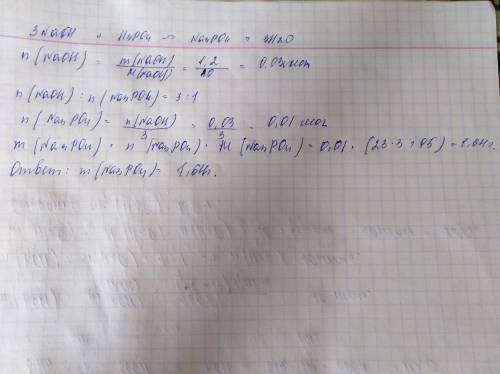 3NaOH + H3PO4 → Na3PO4 + 3H2O
n(NaOH) = m(NaOH)/M(NaOH) = 1,2/40 = 0,03 моль
n(NaOH) : n(Na3PO4) = 3 : 1
n(Na3PO4) = n(NaOH)/3 = 0,03/3 = 0,01 моль
m(Na3PO4) = n(Na3PO4) · M(Na3PO4) = 0,01 · (23·3+95) = 1,64г.
Ответ: m(Na3PO4) = 1,64г.